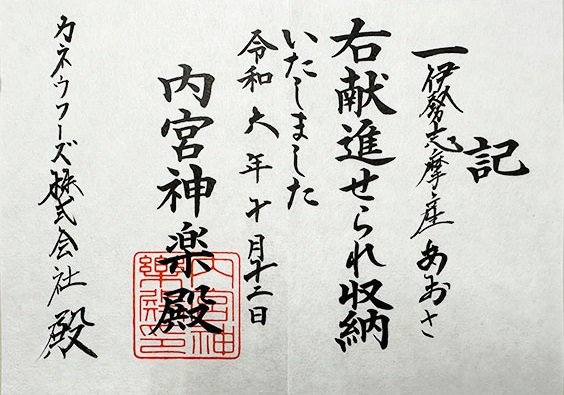 記
一伊勢志摩産あおさ
右献進せられ収納
いたしました
令和六年十月十二日
内宮神楽殿
内宮神楽殿之印
カネウフーズ株式会社 殿